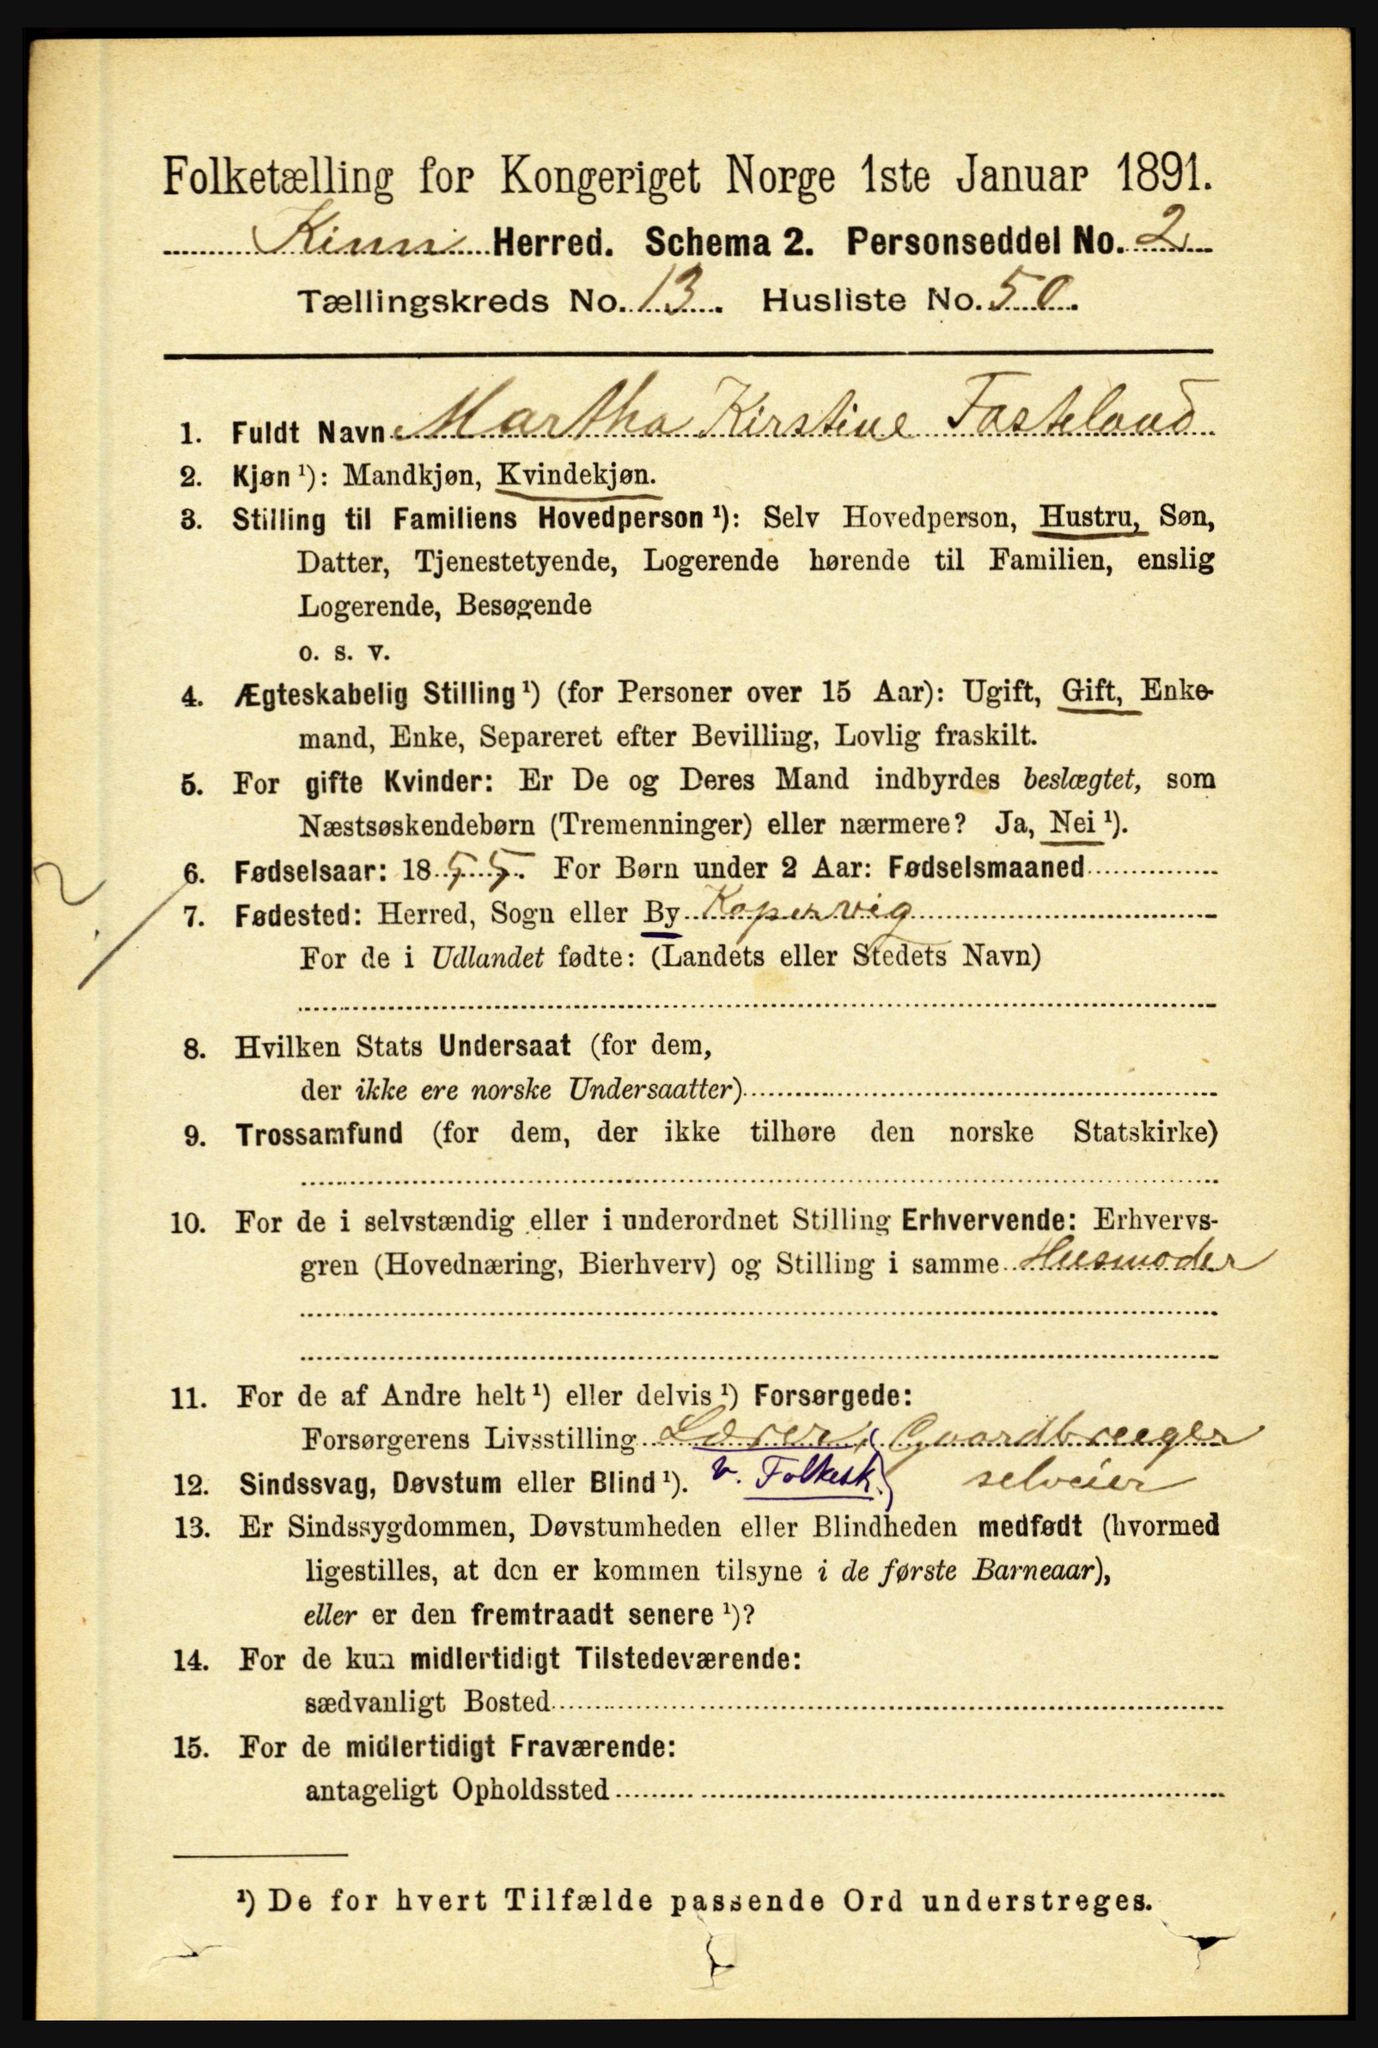 Folketælling for Kongeriget Norge 1ste Januar 1891.
Kinn Herred. Schema 2. Personseddel No. 2
Tællingskreds No. 13. Husliste No. 50.
1. Fuldt Navn Martha Kirstine Fasteland
2. Kjøn ¹): Mandkjøn, Kvindekjøn.
3. Stilling til Familiens Hovedperson ¹): Selv Hovedperson, Hustru, Søn,
Datter, Tjenestetyende, Logerende hørende til Familien, enslig
Logerende, Besøgende
o. s. v.
4. Ægteskabelig Stilling ¹) (for Personer over 15 Aar): Ugift, Gift, Enke-
mand, Enke, Separeret efter Bevilling, Lovlig fraskilt.
5. For gifte Kvinder: Er De og Deres Mand indbyrdes beslægtet, som
Næstsøskendebørn (Tremenninger) eller nærmere? Ja, Nei ¹).
2
6. Fødselsaar: 1855. For Børn under 2 Aar: Fødselsmaaned
7. Fødested: Herred, Sogn eller By Kopervig
For de i Udlandet fødte: (Landets eller Stedets Navn)
8. Hvilken Stats Undersaat (for dem,
der ikke ere norske Undersaatter)
9. Trossamfund (for dem, der ikke tilhøre den norske Statskirke)
10. For de i selvstændig eller i underordnet Stilling Erhvervende: Erhvervs-
gren (Hovednæring, Bierhverv) og Stilling i samme Husmoder
11. For de af Andre helt ¹) eller delvis ¹) Forsørgede:
Forsørgerens Livsstilling Lærer, Gaardbruger
12. Sindssvag, Døvstum eller Blind ¹). v. Folkesk. selveier
13. Er Sindssygdommen, Døvstumheden eller Blindheden medfødt (hvormed
ligestilles, at den er kommen tilsyne i de første Barneaar),
eller er den fremtraadt senere ¹)?
14. For de kun midlertidigt Tilstedeværende:
sædvanligt Bosted
15. For de midlertidigt Fraværende:
antageligt Opholdssted
¹) De for hvert Tilfælde passende Ord understreges.